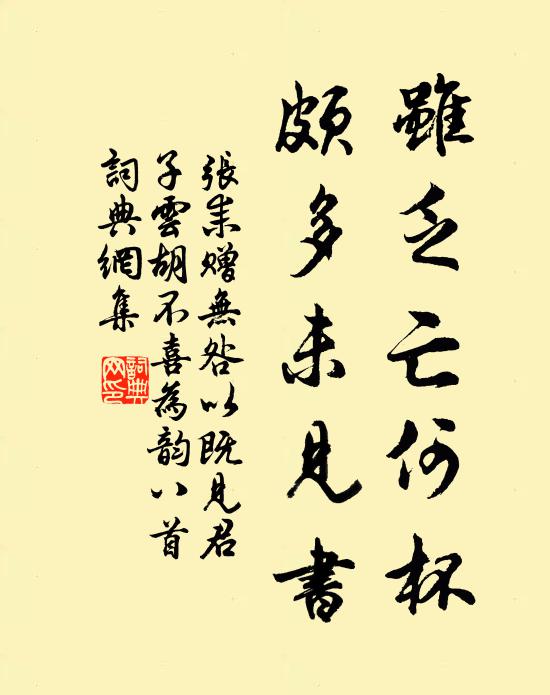 雖乏亡何杯
頗多未見書
張耒贈無咎以既見君
子雲胡不喜為韵八首
詞典網集
詞典
网印